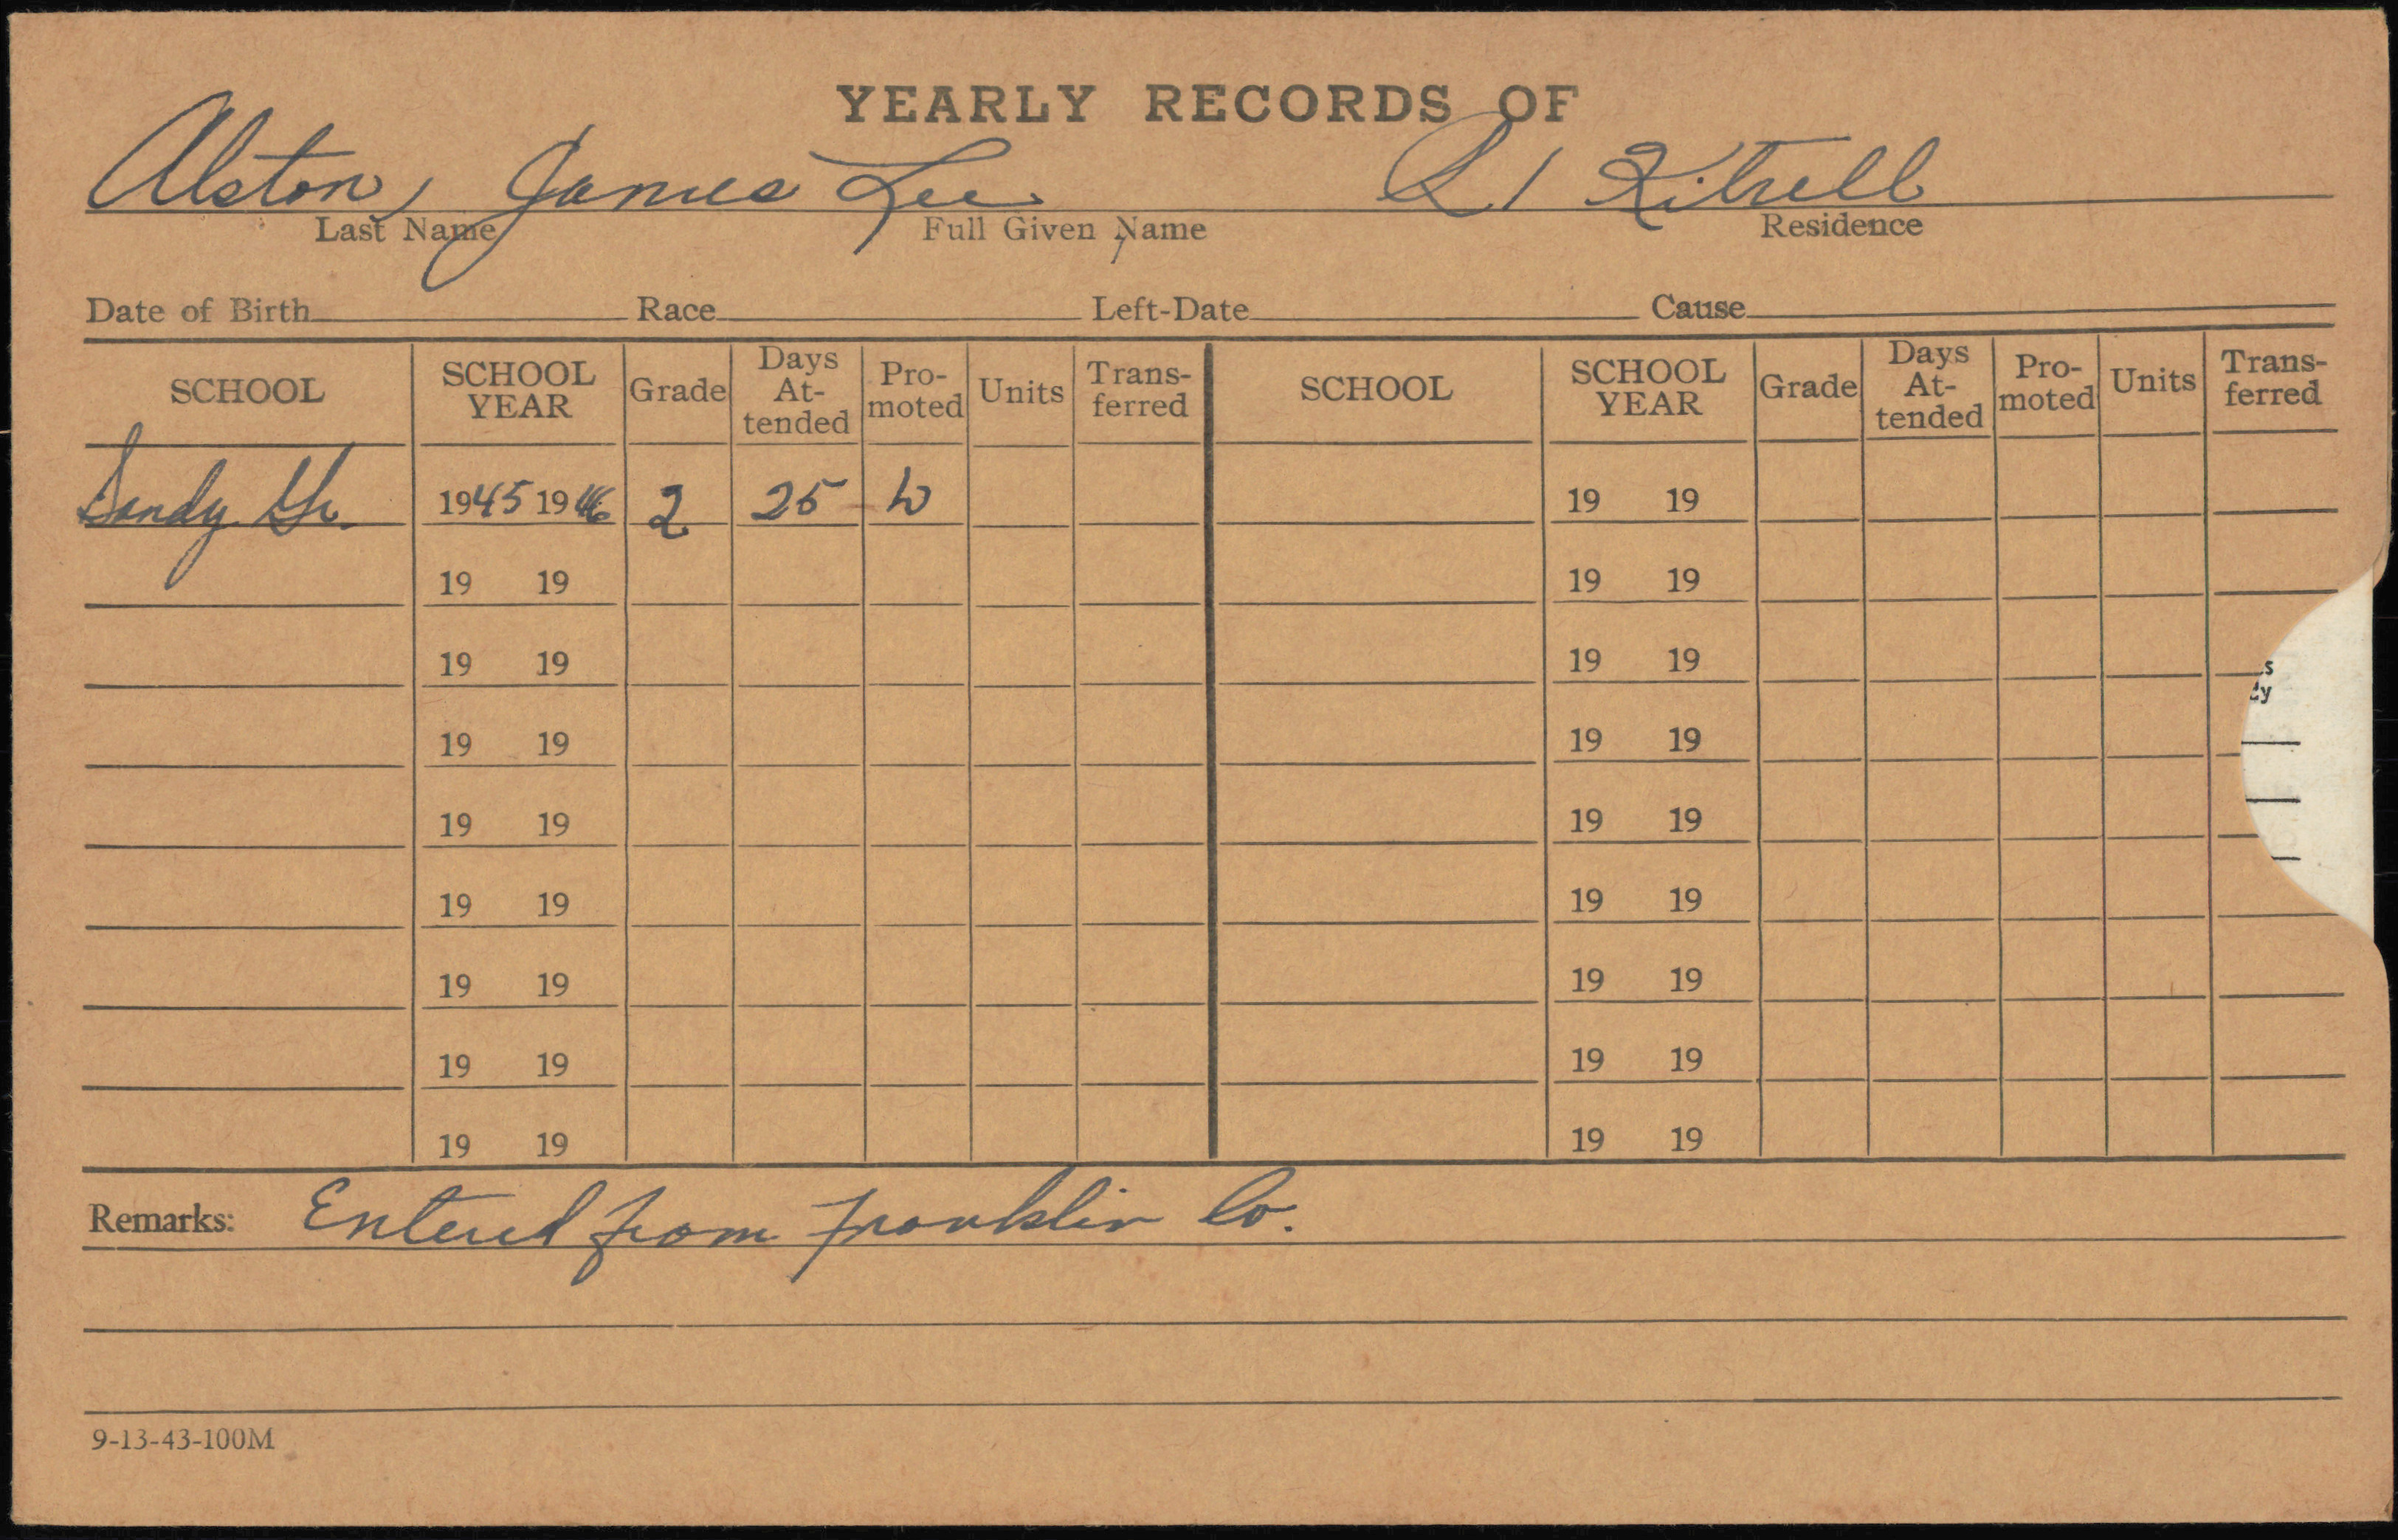 YEARLY RECORDS OF
Alston, James Lee R1 Kitrell
Last Name Full Given Name Residence
Date of Birth Race Left-Date Cause
SCHOOL SCHOOL YEAR Grade Days At-tended Pro-moted Units Trans-ferred SCHOOL SCHOOL YEAR Grade Days At-tended Pro-moted Units Trans-ferred
Sandy Gr. 1945 1946 2 25 W 19 19
19 19 19 19
19 19 19 19
19 19 19 19
19 19 19 19
19 19 19 19
19 19 19 19
19 19 19 19
19 19 19 19
Remarks: Entered from Franklin Co.
9-13-43-100M